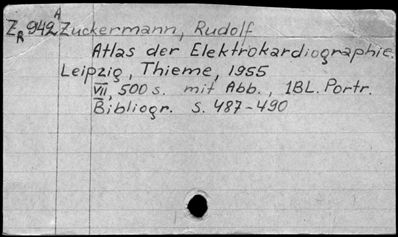 Z_R 942 A Zuckermann, Rudolf
Atlas der Elektrokardiographie.
Leipzig, Thieme, 1955
VII, 500 s. mit Abb., 1BL. Portr.
Bibliogr. S. 487-490